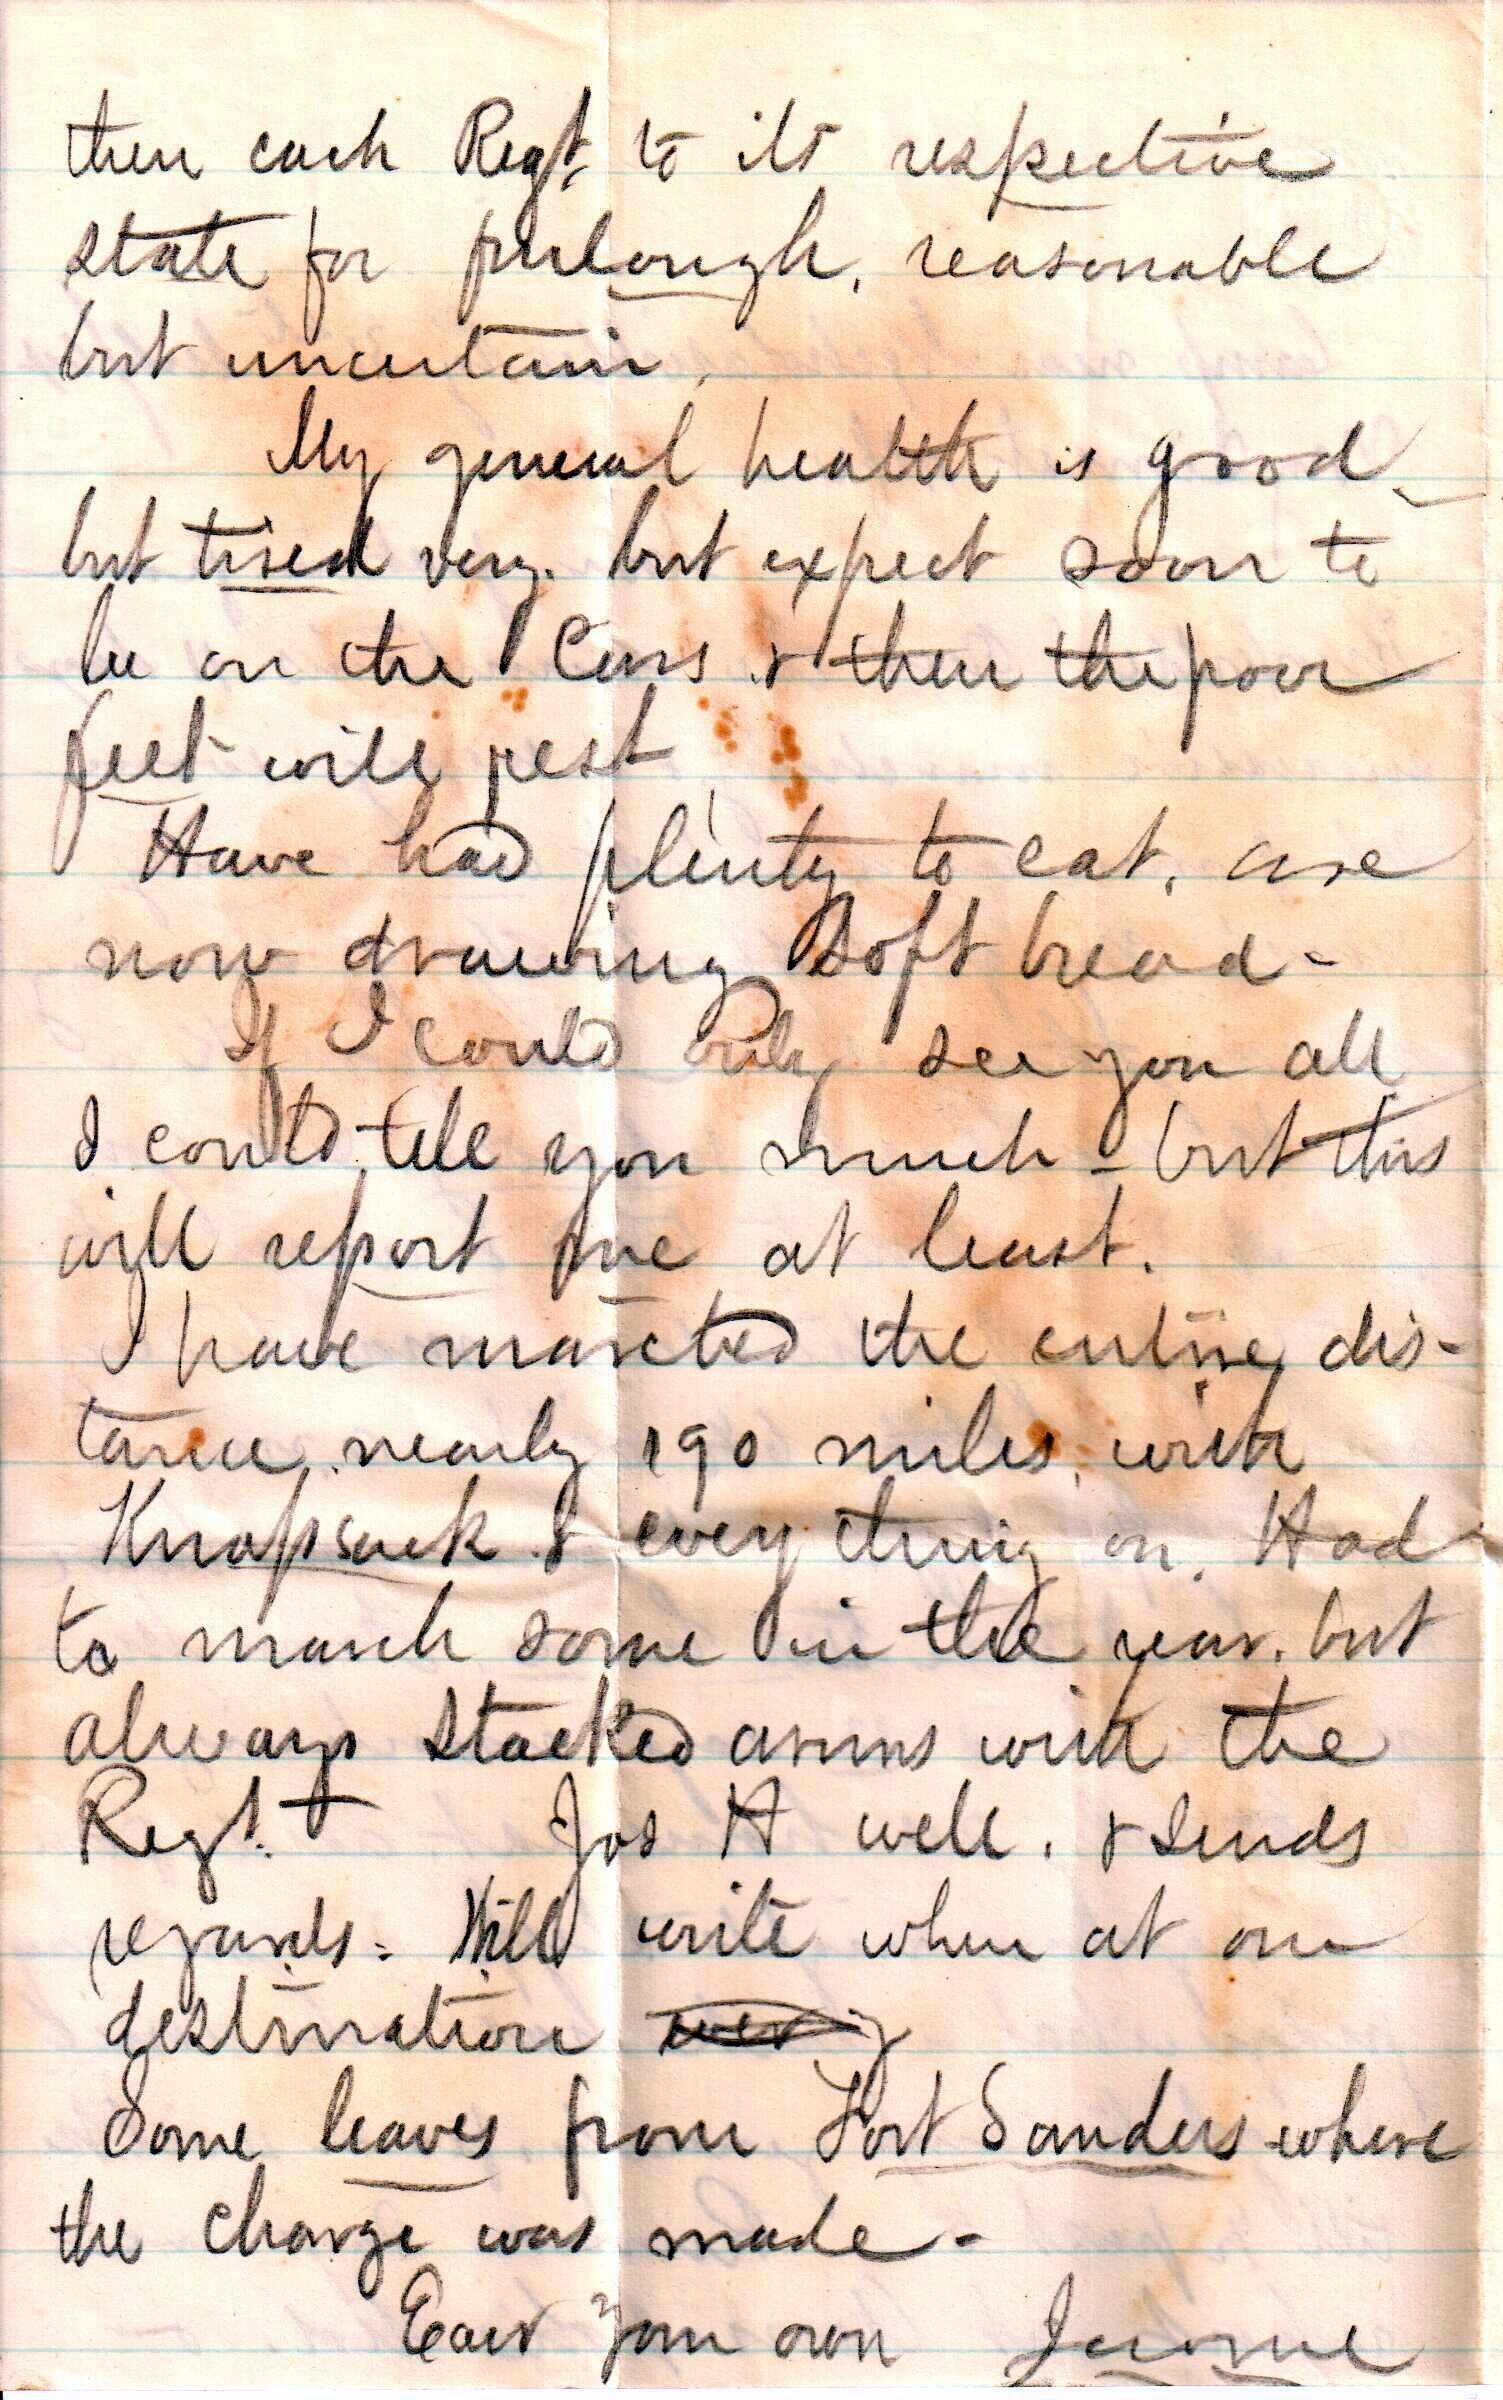 then each Regt, to its respective
state for furlough, reasonable
but uncertain,
My general health is good
but tired very. but expect soon to
be on the Cars & then the poor
feet will rest
Have had plenty to eat, are
now drawing Soft bread -
If I could only see you all
I could tell you much - but this
will report me at least.
I have marched the entire dis-
tance, nearly 190 miles, with
Knapsack & every thing on. Had
to march some in the rear, but
always stacked arms with the
Regt. Jos H well, & sends
regards. Will write when at our
destination
Some leaves from Fort Sanders where
the charge was made -
Ever your own Jerome